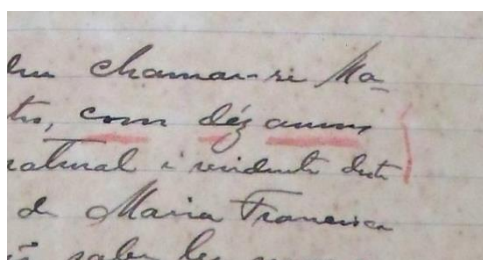 chamar-se Ma-
tro, com déz annos
natural e residente desta
de Maria Francisca
saber ler